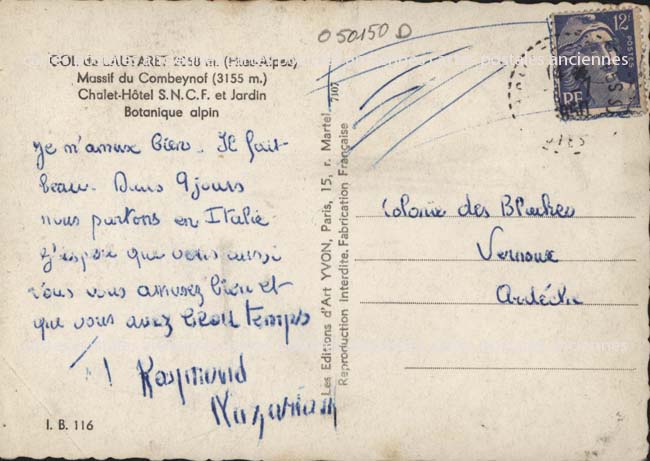 O 50150 D
COL du LAUTARET 2058 m. (Htes-Alpes)
Massif du Combeynot (3155 m.)
Chalet-Hôtel S.N.C.F. et Jardin
Botanique alpin
Je m'amuse bien. Il fait
beau. Dans 9 jours
nous partons en Italie
J'espère que vous aussi
vous vous amusez bien et
que vous avez beau temps
Raymond
I. B. 116
Les Editions d'Art YVON, Paris, 15, r. Martel 7107
Reproduction Interdite. Fabrication Française
12F
POSTES
RF
Colonie des Blaches
Vernoux
Ardèche